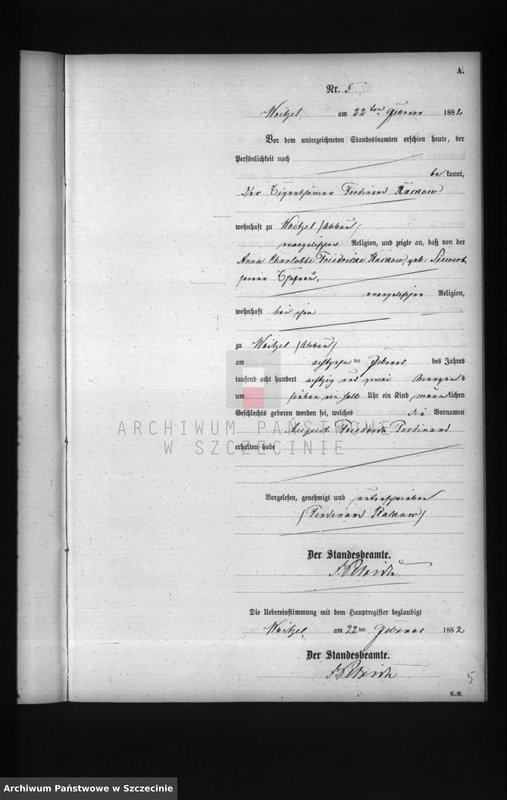 A.
Nr. 5
Woitzel am 22ten Februar 1882
Vor dem unterzeichneten Standesbeamten erschien heute, der
Persönlichkeit nach
bekannt,
der Eigenthümer Ferdinand
wohnhaft zu Woitzel (Abbau)
evangelischer Religion, und zeigte an, daß von der
Anna Charlotte Friedericke geb.
seiner Ehefrau,
evangelischer Religion,
wohnhaft bei ihm
zu Woitzel (Abbau)
am achtzehn ten Februar des Jahres
tausend acht hundert achtzig und zwei Morgens
um sieben ein halb Uhr ein Kind männlichen
Geschlechts geboren worden sei, welches die Vornamen
August Friedrich Ferdinand
erhalten habe
ARCHIWUM PAŃSTWOWE
W SZCZECINIE
Vorgelesen, genehmigt und unterschrieben
(Ferdinand
Der Standesbeamte.
Die Uebereinstimmung mit dem Hauptregister beglaubigt
Woitzel, am 22ten Februar 1882
Der Standesbeamte.
5
Archiwum Państwowe w Szczecinie